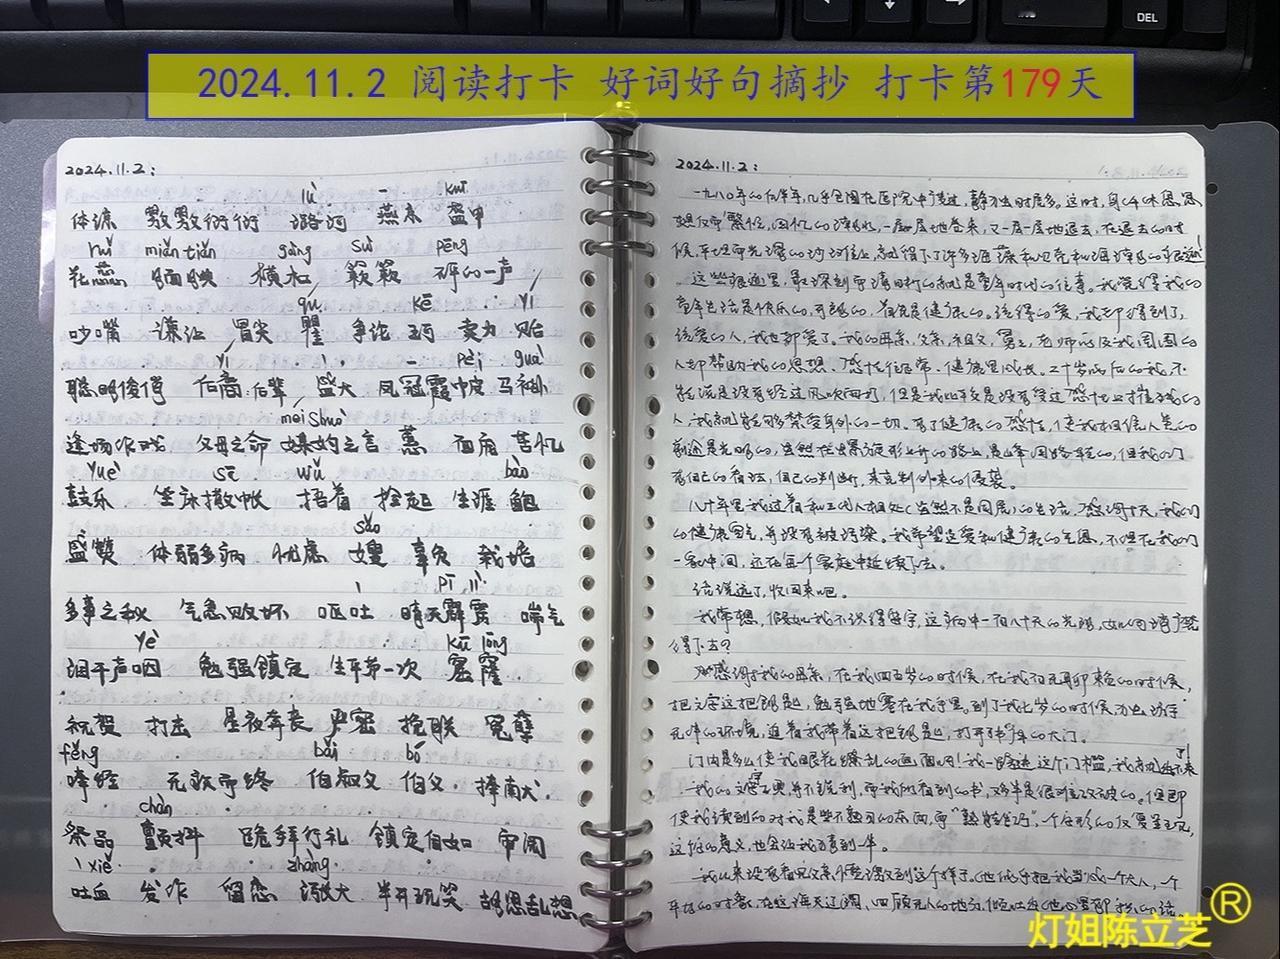 DEL
2024.11.2 阅读打卡 好词好句摘抄 打卡第179天
2024.11.2:
lù kuī
体谅 敷敷衍衍 潞河 燕京 盔甲
ruǐ miǎn tiǎn gàng sù pēng
花蕊 腼腆 横杠 簌簌 砰的一声
qú kē yí
吵嘴 谦让 冒尖 瞿 争论 珂 卖力 贻
yì pèi guà
聪明俊俏 后裔 后辈 盛大 凤冠霞帔 马褂
mei Shuò
逢场作戏 父母之命 媒妁之言 蕙 面庙 苦忆
Yuè sē wǔ bào
鼓乐 坐床撒帐 捂着 拴起 生涯 鲍
sǎo
盛赞 体弱多病 忧虑 嫂 辜负 栽培
pī lì
多事之秋 气急败坏 呕吐 晴天霹雳 喘气
yè kū lóng
泪干声咽 勉强镇定 生平第一次 窟窿
祝贺 打击 星夜奔丧 严密 挽联 冤孽
fěng bǎi bó
唪经 无敌而终 伯叔父 伯父 择南犬
chàn
祭品 颤抖 跪拜行礼 镇定自如 审阅
xiě zhàng
吐血 发作 留恋 涨大 半开玩笑 胡思乱想
2024.11.2:
一九八0年的后半年,几乎全国在医院中度过,静的时居多。这时,身体休息,思
想却节繁忙,回忆的潮水,一层一层地卷来,又一层一层地退去,在退去的时
候,平坦而光滑的沙滩上,就留下了许多海藻和贝壳和海潮的痕迹!
这些痕迹里,最深刻而清晰的就是童年时代的往事。我觉得我的
童年生活是快乐的,开朗的,首先是健康的。该得的爱,我都得到了,
该爱的人,我也都爱了。我的母亲,父亲,祖父,舅舅,老师以及我周围的
人都帮助我的思想、感情往正常、健康里成长。二十岁以后的我,不
能说是没有经过风吹雨打,但是我比较是没有受过感情上摧残的
人,我就能够禁受身外的一切。有了健康的感情,使我相信人类的
前途是光明的,虽然在螺旋形上升的路上,是峰回路转的,但我们
有自己的看法,自己的判断,来克制外来的侵袭。
八十年里我过着和三代人相处(虽然不是同居)的生活,感谢天,我们
的健康空气,并没有被污染。我希望这爱和健康的气氛,不但在我们
一家中间,还在每一个家庭中延续下去。
话说远了,收回来吧。
我常想,假如我不识得字,这病中一百八十天的光阴,如何消磨
得下去?
感谢我的母亲,在我四五岁的时候,在我百无聊赖的时候,
把文字这把钥匙,勉强地塞在我手里。到了我七岁的时候,
无伴的环境,迫着我带着这把钥匙,打开了书库的大门。
门内是多么使我眼花缭乱的画面啊!我一跨进这个门槛,我就出不来了!
我的文字工具并不锐利,而我所看到的书,又多半是很难攻破的。但即
使我读到的对我是些不熟习的东西,而“熟能生巧”,一个字形的反复呈现,
这个字的意义,也会让我猜到一半。
我从来没有看见父亲
平等的对象,在这海天辽阔、四顾无人的地方,倾吐出他心里郁积的话。
灯姐陈立芝®